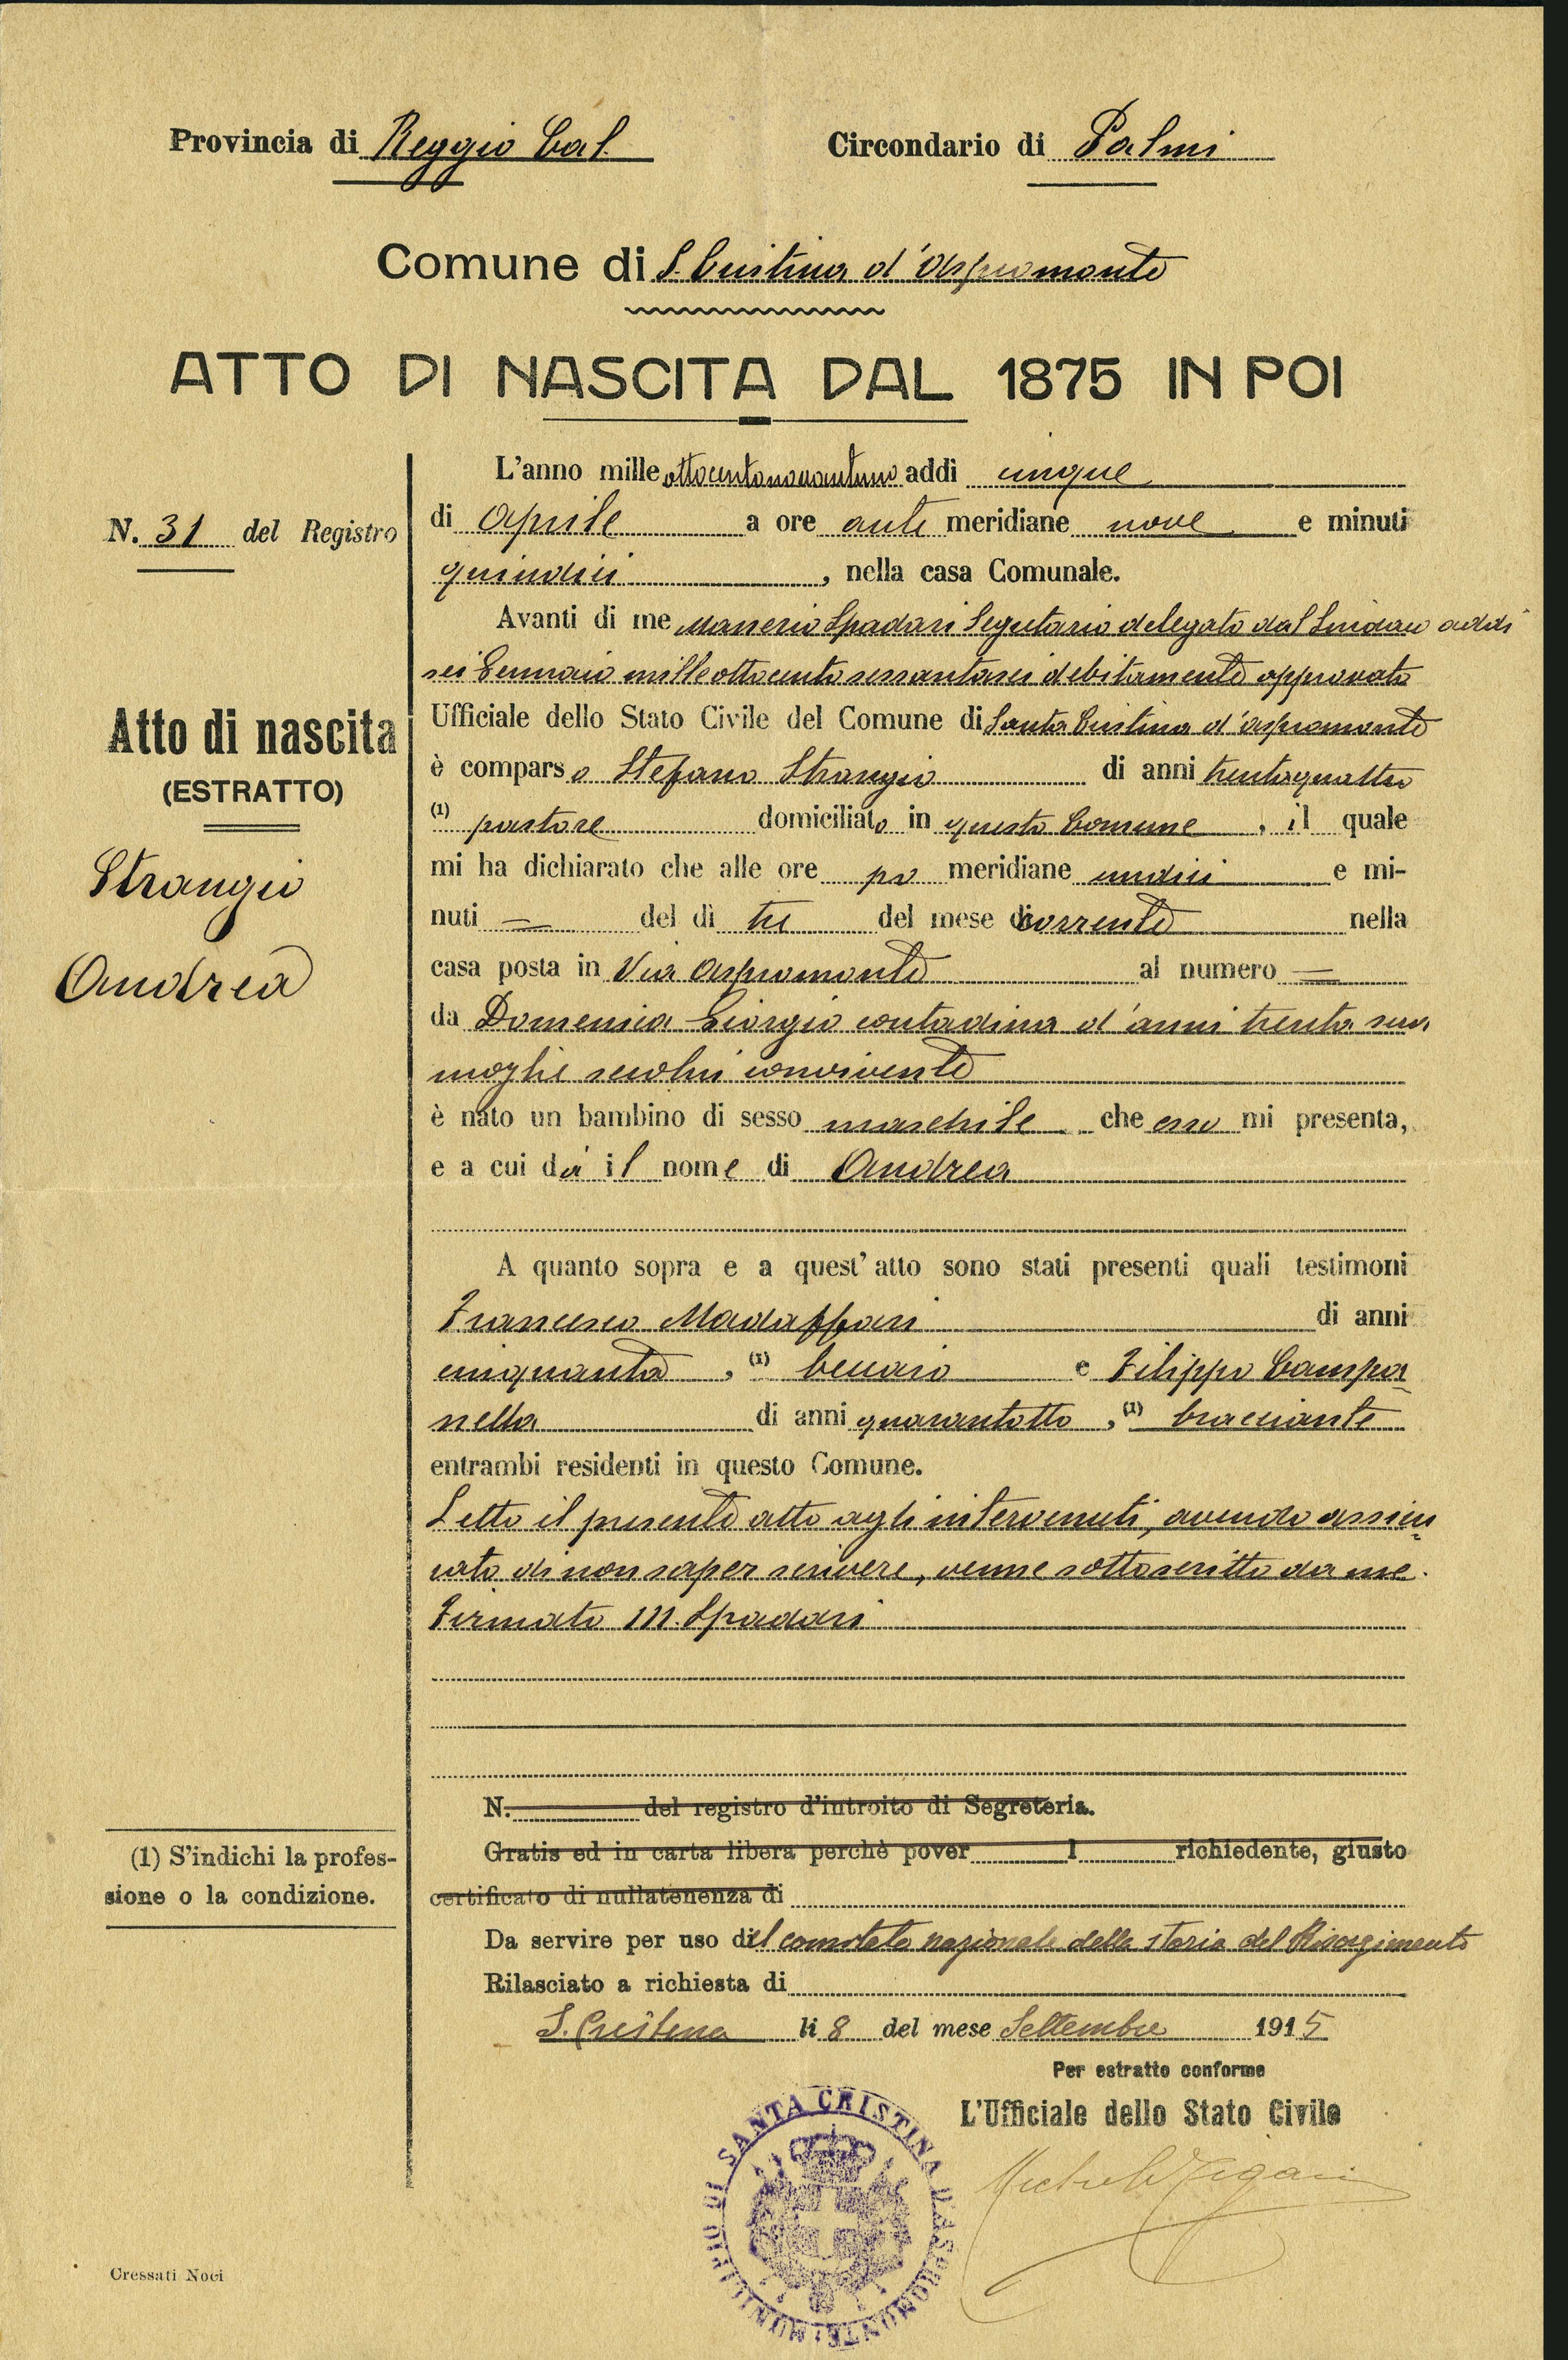 Provincia di Reggio Cal. Circondario di Palmi
Comune di S. Cristina d'Aspromonte
ATTO DI NASCITA DAL 1875 IN POI
N. 31 del Registro
Atto di nascita
(ESTRATTO)
Strangio
Andrea
L'anno mille ottocentonovantuno addì cinque
di Aprile a ore anti meridiane nove e minuti
quindici, nella casa Comunale.
Avanti di me Spadari Segretario delegato dal Sindaco addi
sei Gennaio milleottocentosessantasei debitamente approvato
Ufficiale dello Stato Civile del Comune di Santa Cristina d'Aspromonte
è comparso Stefano Strangio di anni trentaquattro
(1) pastore domiciliato in questo Comune, il quale
mi ha dichiarato che alle ore po meridiane undici e mi-
nuti = del dì tre del mese di corrente nella
casa posta in Via Aspromonte al numero =
da Domenica Giorgio contadina d'anni trenta sua
moglie secolui convivente
è nato un bambino di sesso maschile che esso mi presenta,
e a cui dà il nome di Andrea
A quanto sopra e a quest'atto sono stati presenti quali testimoni
Francesco Madaffari di anni
cinquanta, (1) beccaio e Filippo Campa
nella di anni quarantotto, (1) bracciante
entrambi residenti in questo Comune.
Letto il presente atto agli intervenuti, avendo assicu
rato di non saper scrivere, venne sottoscritto da me.
Firmato M. Spadari
N. del registro d'introito di Segreteria.
Gratis ed in carta libera perchè pover l richiedente, giusto
certificato di nullatenenza di
(1) S'indichi la profes-
sione o la condizione.
Da servire per uso del comitato nazionale della storia del Risorgimento
Rilasciato a richiesta di
S. Cristina li 8 del mese Settembre 1915
Per estratto conforme
L'Ufficiale dello Stato Civile
MUNICIPIO DI SANTA CRISTINA D'ASPROMONTE
Cressati Noci